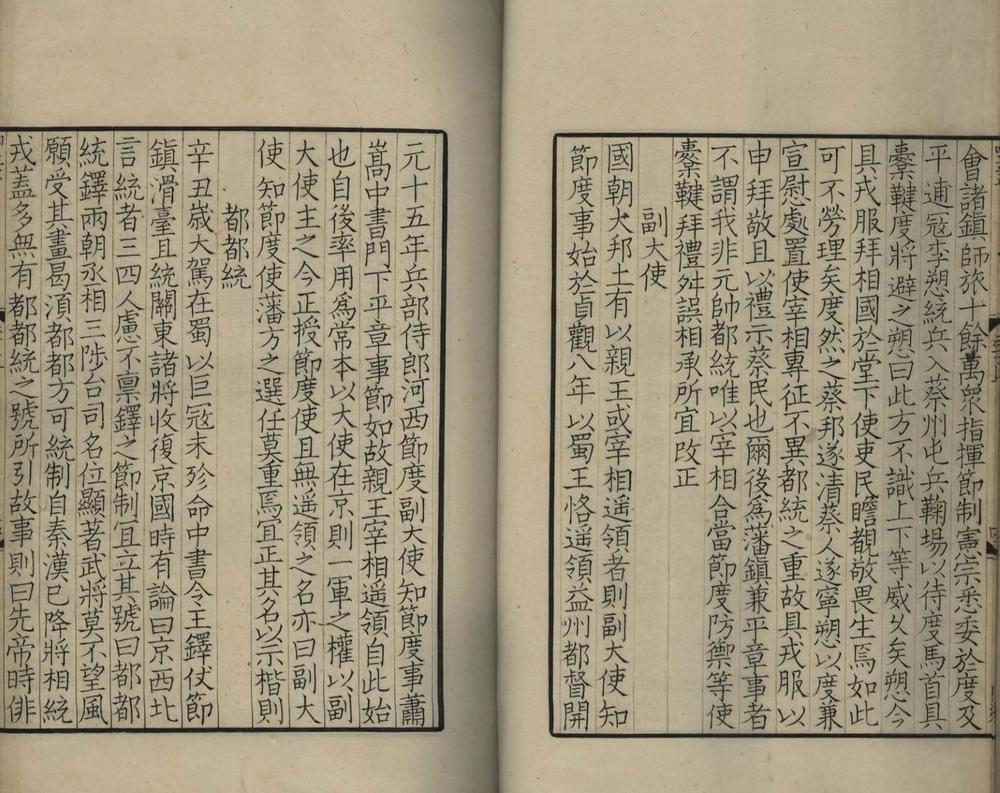 會諸鎮師旅十餘萬衆指揮節制憲宗悉委於度及
平逋寇李愬統兵入蔡州屯兵鞠場以待度馬首具
櫜鞬度將避之愬曰此方不識上下等威久矣愬今
具戎服拜相國於堂下使吏民瞻覩敬畏生焉如此
可不勞理矣度然之蔡邦遂清蔡人遂寧愬以度兼
宣慰處置使宰相專征不異都統之重故具戎服以
申拜敬且以禮示蔡民也爾後為藩鎮兼平章事者
不謂我非元帥都統唯以宰相合當節度防禦等使
櫜鞬拜禮舛誤相承所宜改正
副大使
國朝大邦土有以親王或宰相遥領者則副大使知
節度事始於貞觀八年以蜀王恪遥領益州都督開
元十五年兵部侍郎河西節度副大使知節度事蕭
嵩中書門下平章事節如故親王宰相遥領自此始
也自後率用為常本以大使在京則一軍之權以副
大使主之今正授節度使且無遥領之名亦曰副大
使知節度使藩方之選任莫重焉宜正其名以示楷則
都都統
辛丑嵗大駕在蜀以巨寇未殄命中書令王鐸仗節
鎮滑臺且統關東諸將收復京國時有論曰京西北
言統者三四人慮不禀鐸之節制宜立其號曰都都
統鐸兩朝丞相三陟台司名位顯著武將莫不望風
願受其畫曷須都都方可統制自秦漢已降將相統
戎蓋多無有都都統之號所引故事則曰先帝時俳